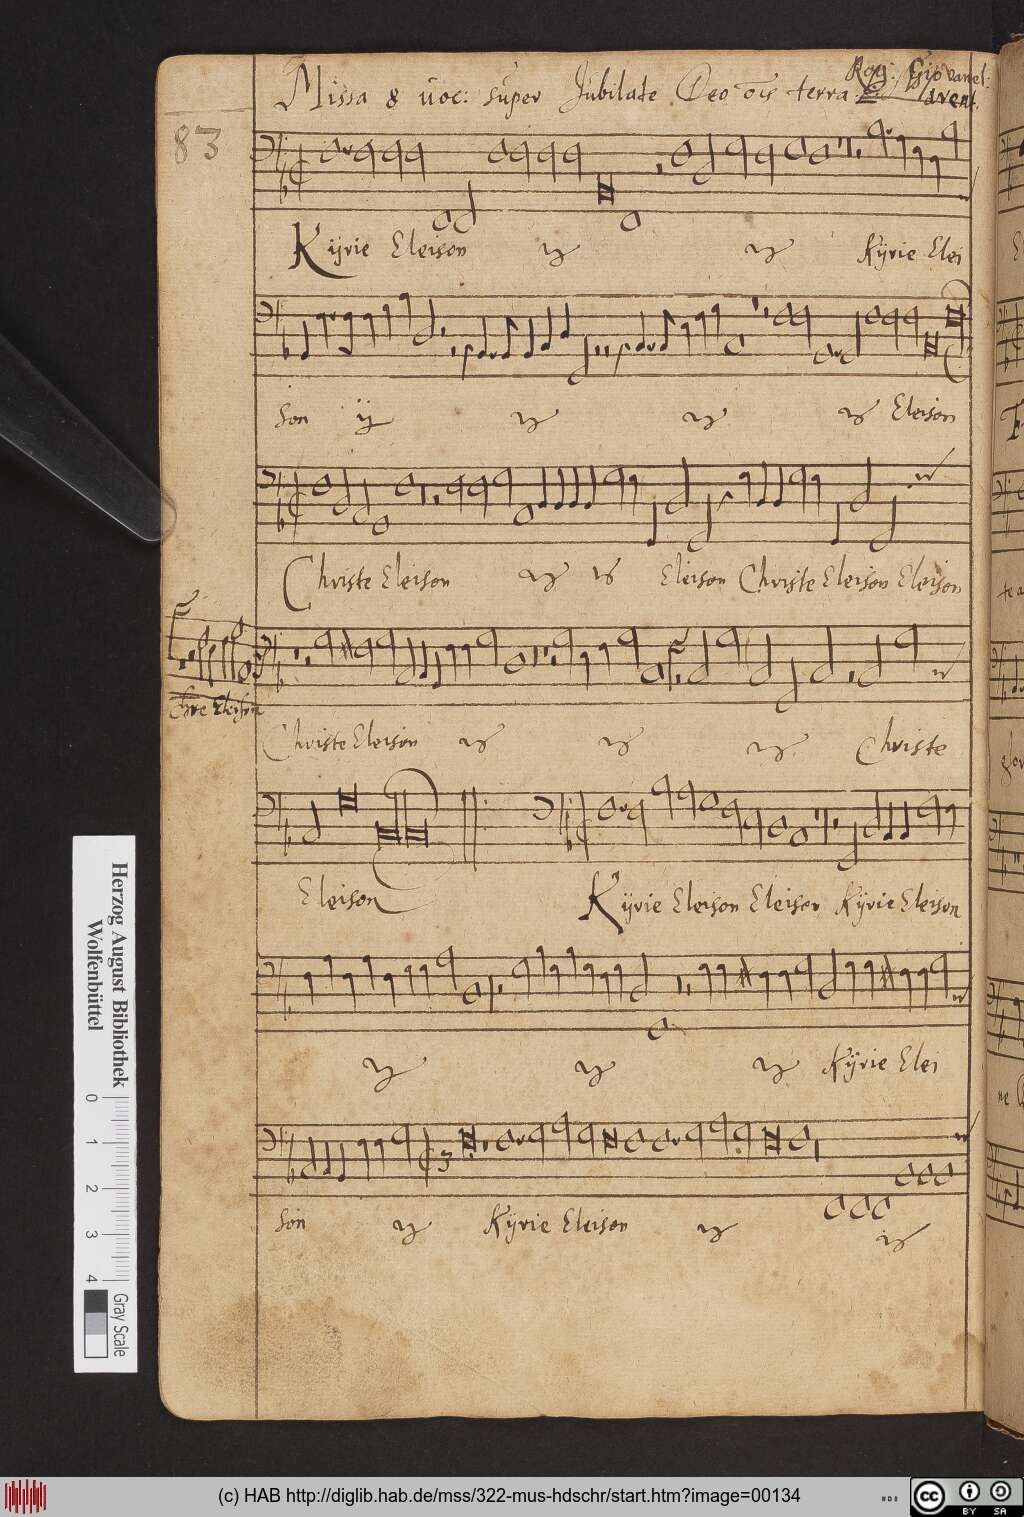 Missa 8 uoc: super Jubilate Deo ois terra
Rog: Giovanel:
83
Kyrie Eleison ij ij Kyrie Elei
son ij ij ij ij Eleison
Christe Eleison ij ij Eleison Christe Eleison Eleison
Chre Eleison
Christe Eleison ij ij ij Christe
Eleison
Kyrie Eleison Eleison Kyrie Eleison
ij ij ij Kyrie Elei
3
son ij Kyrie Eleison ij ij
Herzog August Bibliothek
Wolfenbüttel
0 1 2 3 4
Gray Scale
(c) HAB http://diglib.hab.de/mss/322-mus-hdschr/start.htm?image=00134
cc BY SA